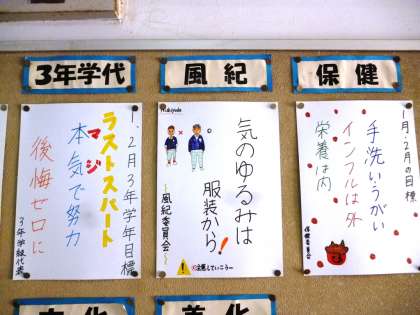 3年学代
風紀
保健
1、2月3年学年目標
ラストスパート
マジ
本気で努力
後悔ゼロに
3年学級代表
気のゆるみは
服装から!
~風紀委員会~
1月・2月の目標
手洗いうがい
インフルは外
栄養は内
保健委員会